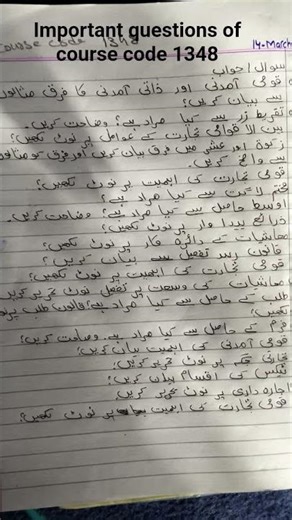 Important questions of
course code 1348
Course Code 1348
14-March
سوال / جواب
قومی آمدنی اور ذاتی آمدنی کا فرق مثالوں
سے بیان کریں؟
تفریط زر سے کیا مراد ہے؟ وضاحت کریں۔
بین الاقوامی تجارت کے عوامل پر نوٹ لکھیں؟
زکوۃ اور عشر میں فرق بیان کریں اور فرق کو مثالوں
سے واضح کریں۔
قومی تجارت کی اہمیت پر نوٹ لکھیں؟
ختم لاگت سے کیا مراد ہے؟
اوسط حاصل سے کیا مراد ہے؟ وضاحت کریں۔
ذرائع پیداوار پر نوٹ لکھیں؟
معاشیات کے دائرہ کار پر نوٹ لکھیں؟
قانون رسد تفصیل سے بیان کریں؟
قومی تجارت کی اہمیت پر نوٹ لکھیں؟
معاشیات کی وسعت پر مفصل نوٹ تحریر کریں
طلب کے حاصل سے کیا مراد ہے؟ قانون طلب پر نوٹ
لکھیں؟
فرم کے حاصل سے کیا مراد ہے۔ وضاحت کریں؟
قومی آمدنی کی اہمیت بیان کریں؟
تجارتی چکر پر نوٹ تحریر کریں؟
ٹیکس کی اقسام بیان کریں؟
اجارہ داری پر نوٹ تحریر کریں
قومی تجارت کی اہمیت پر نوٹ لکھیں؟